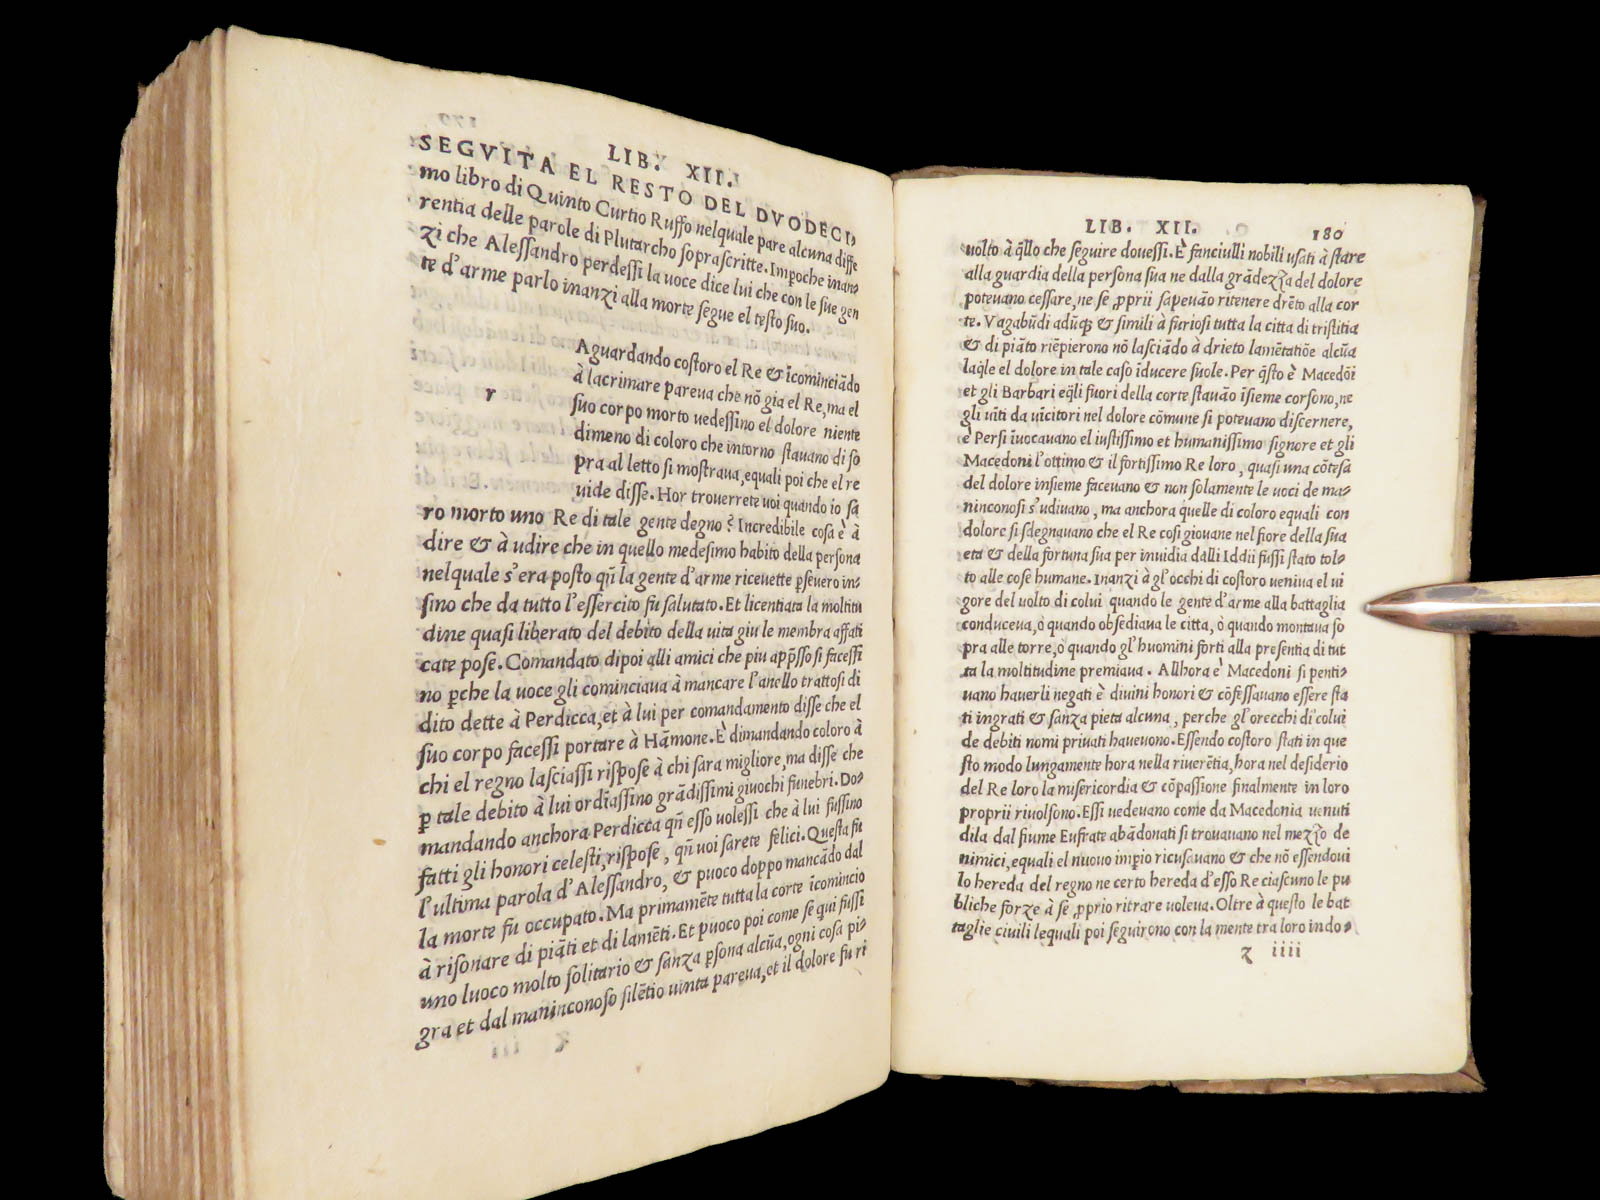 LIB. XII.
SEGVITA EL RESTO DEL DVODECI,
mo libro di Quinto Curtio Ruffo nelquale pare alcuna diffe
rentia delle parole di Plutarcho soprascritte. Impoche inan-
zi che Alessandro perdessi la uoce dice lui che con le sue gen
te d'arme parlo inanzi alla morte segue el testo suo.
Aguardando costoro el Re & īcominciādo
r
à lacrimare pareua che nō gia el Re, ma el
suo corpo morto uedessino el dolore niente
dimeno di coloro che intorno stauano di so
pra al letto si mostraua, equali poi che el re
uide disse. Hor trouerrete uoi quando io sa
rò morto uno Re di tale gente degno? Incredibile cosa è à
dire & à udire che in quello medesimo habito della persona
nelquale s'era posto qñ la gente d'arme riceuette p̱seuero in-
sino che da tutto l'essercito fu salutato. Et licentiata la moltitu
dine quasi liberato del debito della uita giu le membra affati
cate pose. Comandato dipoi alli amici che piu app̄sso si facessi
no p̱che la uoce gli cominciaua à mancare l'anello trattosi di
dito dette à Perdicca, et à lui per comandamento disse che el
suo corpo facessi portare à Hāmone. È dimandando coloro à
chi el regno lasciassi rispose à chi sara migliore, ma disse che
p̱ tale debito à lui ordīassino grādissimi giuochi funebri. Do-
mandando anchora Perdicca qñ esso uolessi che à lui fussino
fatti gli honori celesti, rispose, qñ uoi sarete felici. Questa fu
l'ultima parola d'Alessandro, & puoco doppo mancādo dal
la morte fu occupato. Ma primamēte tutta la corte īcomincio
à risonare di piāti et di lamēti. Et puoco poi come se qui fussi
uno luoco molto solitario & sanza p̱sona alcūa, ogni cosa pi-
gra et dal maninconoso silētio uinta pareua, et il dolore fu ri
LIB. XII. 180
uolto à q̄llo che seguire douessi. È fanciulli nobili usati à stare
alla guardia della persona sua ne dalla grādezza del dolore
poteuano cessare, ne se ꝓprii sapeuāo ritenere drēto alla cor
te. Vagabūdi adūq; & simili à furiosi tutta la citta di tristitia
& di piāto riēpierono nō lasciādo à drieto lamētatiōe alcūa
laq̄le el dolore in tale caso īducere suole. Per q̄sto è Macedōi
et gli Barbari eq̄li fuori della corte stauāo īsieme corsono, ne
gli uīti da uīcitori nel dolore cōmune si poteuano discernere,
è Persi iuocauano el iustissimo et humanissimo signore et gli
Macedoni l'ottimo & il fortissimo Re loro, quasi una cōtesa
del dolore insieme faceuano & non solamente le uoci de ma-
ninconosi s'udiuano, ma anchora quelle di coloro equali con
dolore si sdegnauano che el Re cosi giouane nel fiore della sua
eta & della fortuna sua per inuidia dalli Iddii fussi stato tol-
to alle cose humane. Inanzi à gl'occhi di costoro ueniua el ui
gore del uolto di colui quando le gente d'arme alla battaglia
conduceua, ò quando obsediaua le citta, ò quando montaua so
pra alle torre, ò quando gl'huomini forti alla presentia di tut
ta la moltitudine premiaua. Allhora è Macedoni si penti-
uano hauerli negati è diuini honori & cōfessauano essere sta
ti ingrati & sanza pieta alcuna, perche gl'orecchi di colui
de debiti nomi priuati haueuono. Essendo costoro stati in que
sto modo lungamente hora nella riuerētia, hora nel desiderio
del Re loro la misericordia & cōpassione finalmente in loro
proprii riuolsono. Essi uedeuano come da Macedonia uenuti
dila dal fiume Eufrate abādonati si trouauano nel mezzo de
nimici, equali el nuouo imp̱io ricusauano & che nō essendoui
lo hereda del regno ne certo hereda d'esso Re ciascuno le pu
bliche forze à se ꝓprio ritrare uoleua. Oltre à questo le bat
taglie ciuili lequali poi seguirono con la mente tra loro indo-
z iiii